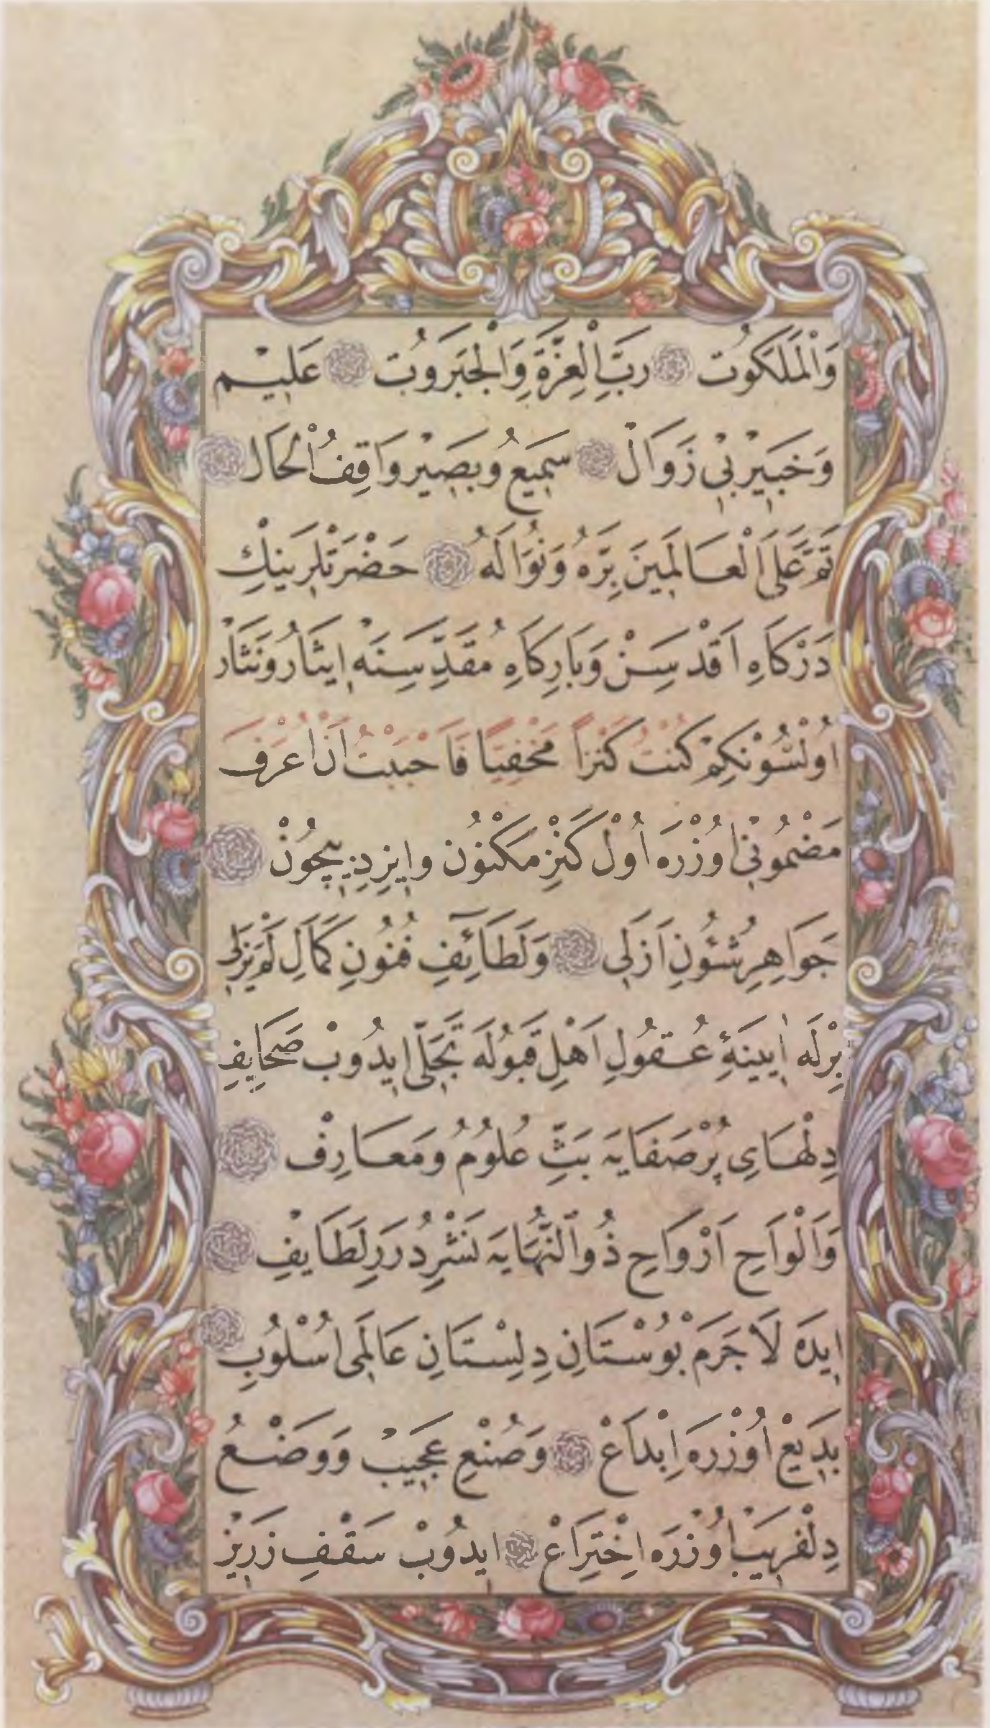 وَالْمَلَكُوتِ رَبِّ الْعِزَّةِ وَالْجَبَرُوتِ عَلِيم
وَخَبِيرْ بِي زَوَالْ سَمِيعُ وَبَصِيْر وَاقِفُ الْحَالْ
تَمَّ عَلَى الْعَالَمِينَ بِرُّهُ وَنَوَالُهُ حَضْرَتْلَرِينِكْ
دَرْكَاهِ اَقْدَسِنْ وَبَارِكَاهِ مُقَدَّسِنَه اِيثَارُ وَنِثَارْ
اُولْسُونْكِمْ كُنْتُ كَنْزاً مَخْفِيًّا فَاَحْبَبْتُ اَنْ اُعْرَفَ
مَضْمُونِي اُوزْرَه اُولْ كَنْزِ مَكْنُون وَايزِدِ بِيچُونْ
جَوَاهِرِ شُئُونِ اَزَلِي وَلَطَائِفِ فُنُونِ كَمَالِ لَمْ يَزَلِي
بِرْلَه اٰيِينَۀِ عُقُولِ اَهْلِ قَبُولَه تَجَلِّي ايدُوبْ صَحَايِفِ
دِلْهَايِ پُرْصَفَايَه بَثِّ عُلُومُ وَمَعَارِفْ
وَاَلْوَاحِ اَرْوَاحِ ذُو النُّهَايَه نَشْرِ دُرَرِ لَطَايِفِ
اِيدَه لَا جَرَمْ بُوسْتَانِ دِلِسْتَانِ عَالَمِي اُسْلُوبِ
بَدِيعْ اُوزْرَه اِبْدَاعْ وَصُنْعِ عَجِيبْ وَوَضْعُ
دِلْفَرِيبْ اُوزْرَه اِخْتِرَاعْ ايدُوبْ سَقْفِ